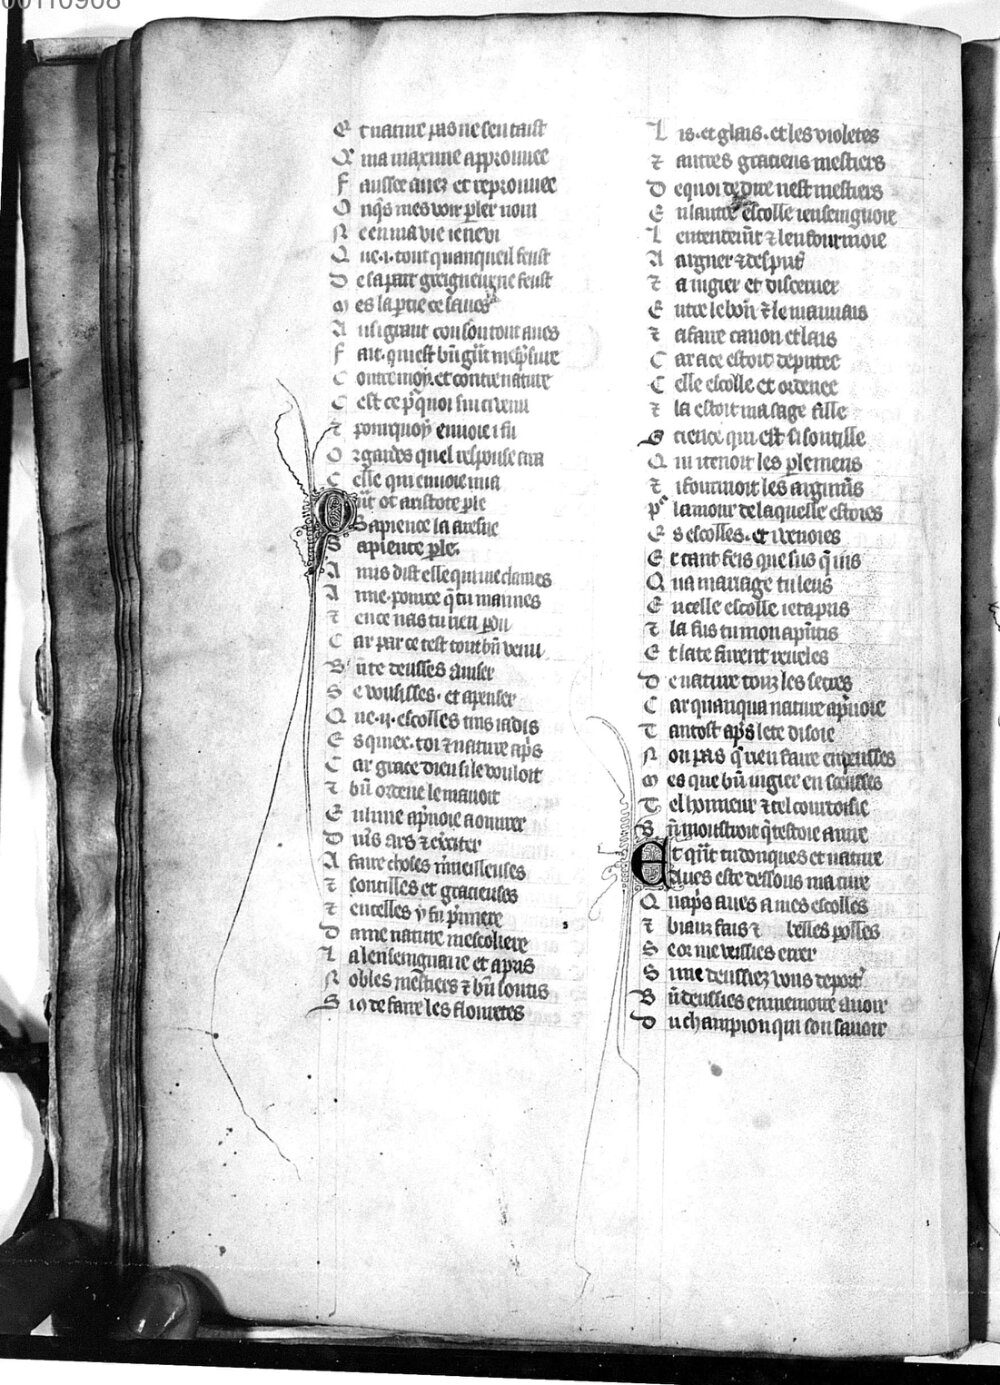 00110908
Et nature pas ne sen taist
Q̃ ma maxime approuuee
Faussee auez et reprouuee
Onq̃s mes voir pler noui
Ne en ma vie ie ne vi
Que .i. tout quanqueil feust
De sa part greigneur ne feust
Mes la ptie ce saues
Aus grant con son tout aues
Fait. qui est bñ grãt mesp̃sure
Contre moy. et contre nature
Cest ce p̃quoi sui ci venu
⁊ pourquoy enuoie i fu
Or gardes quel response aura
Celle qui enuoie ma
Q̃nt ot aristote ple
Sapience la auesue
Sapience ple.
Amis dist elle qui me clames
Aime. pource q̃ tu mannes
⁊ en ce nas tu rien pdu
Car par ce test tout bñ venu
Bñ te deusses auiser
Se vousisses. et apenser
Que .ii. escolles tins iadis
Es quiex. toi ⁊ nature ap̃s
Car grace dieu si le vouloit
⁊ bñ ordene le mauoit
En lune ap̃noie a ouurer
Diũs ars ⁊ exciter
A faire choses m̃ueilleuses
⁊ soutilles et gracieuses
⁊ en celles y fu p̃miere
Dame nature mescoliere
La lenseignaie et apras
Nobles mestiers ⁊ bñ soutis
Sio de faire les flouretes
Lis. et glais. et les violetes
⁊ autres gracieus mestiers
De quoi de dire nest mestiers
En lautre escolle ienseingnoie
Lentendemẽt ⁊ lenfourmoie
A arguer ⁊ desput̃
⁊ a iugier et discerner
Entre le bon ⁊ le mauuais
⁊ a faire canon et lais
Car a ce estoit deputee
Celle escolle et ordenee
⁊ la estoit ma sage fille
Science qui est si soutille
Qui i tenoit les plemens
⁊ i fourmoit les argum̃s
Pͬ lamour de laquelle estoies
Es escolles. et i venoies
Et tant feis que sus q̃ uis
Qua mariage tu leus
En celle escolle ie tapris
⁊ la fus tu mon ap̃ntis
Et la te furent reueles
De nature touz les secres
Car quanqua nature ap̃noie
Tantost ap̃s le te disoie
Non pas q̃ rien faire en peusses
Mes que bñ iugier en sceusses
Tel honneur ⁊ tel courtoisie
Bñ monstroit q̃ testoie amie
Et q̃nt tu donques et nature
Aues este dessous ma cure
Quap̃s aues a mes escolles
⁊ biaux fais ⁊ belles polles
Se or me venssies errer
Si me deussiez vous deport̃
Bñ deussies en memoire auoir
Du champion qui son sauoir